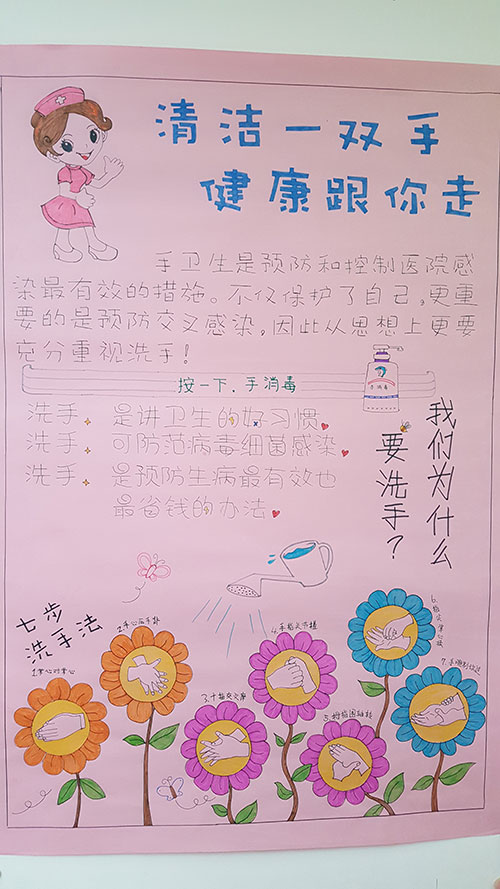 清洁一双手
健康跟你走
手卫生是预防和控制医院感
染最有效的措施。不仅保护了自己,更重
要的是预防交叉感染,因此从思想上更要
充分重视洗手!
按一下.手消毒
洗手 是讲卫生的好习惯
洗手 可防范病毒细菌感染
洗手 是预防生病最有效也
最省钱的办法
我们为什么
要洗手?
七步
洗手法
1.掌心对掌心
2.手心压手背
3.十指交叉摩
4.手握关节搓
5.拇指围轴转
6.指尖掌心揉
7.手腕别放过